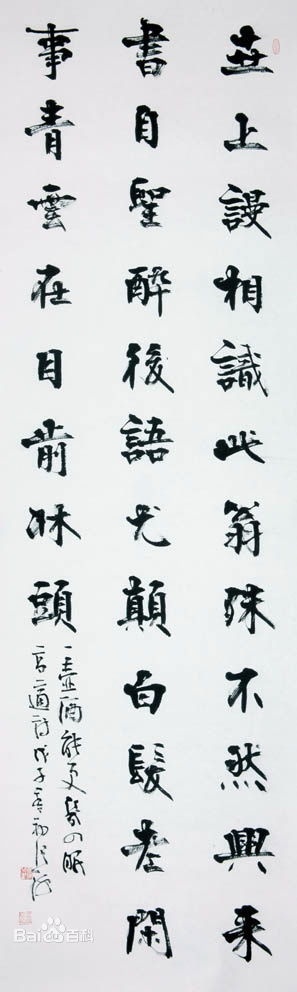 世上謾相識此翁殊不然興來
書自聖醉後語尤顛白髮老閑
事青雲在目前牀頭
一壺酒能更幾回眠
高適詩戊子春初
Bai百科